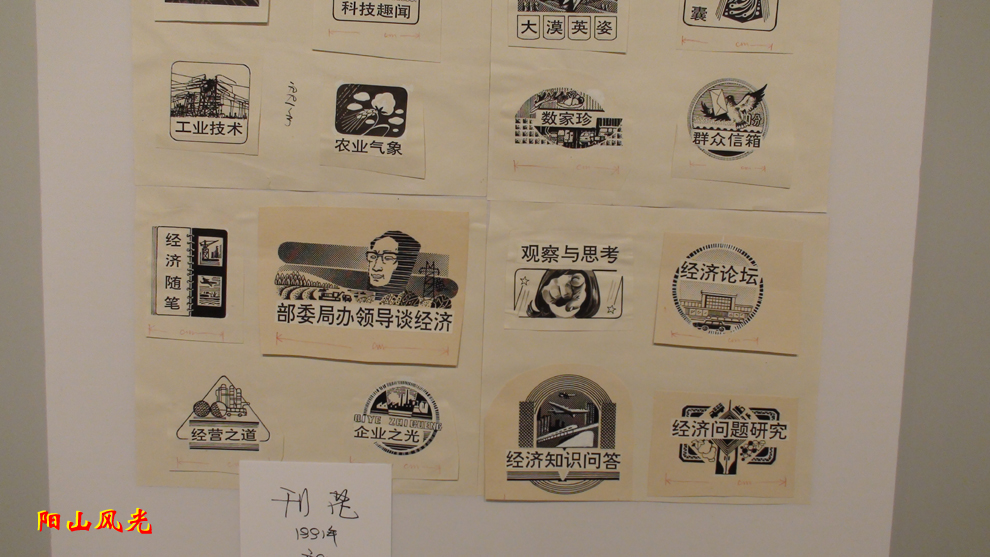 科技趣闻
大漠英姿
囊
工业技术
农业气象
数家珍
群众信箱
经济随笔
部委局办领导谈经济
观察与思考
经济论坛
经营之道
QIYE ZHIGUANG
企业之光
经济知识问答
经济问题研究
刊花
1991年
阳山风光